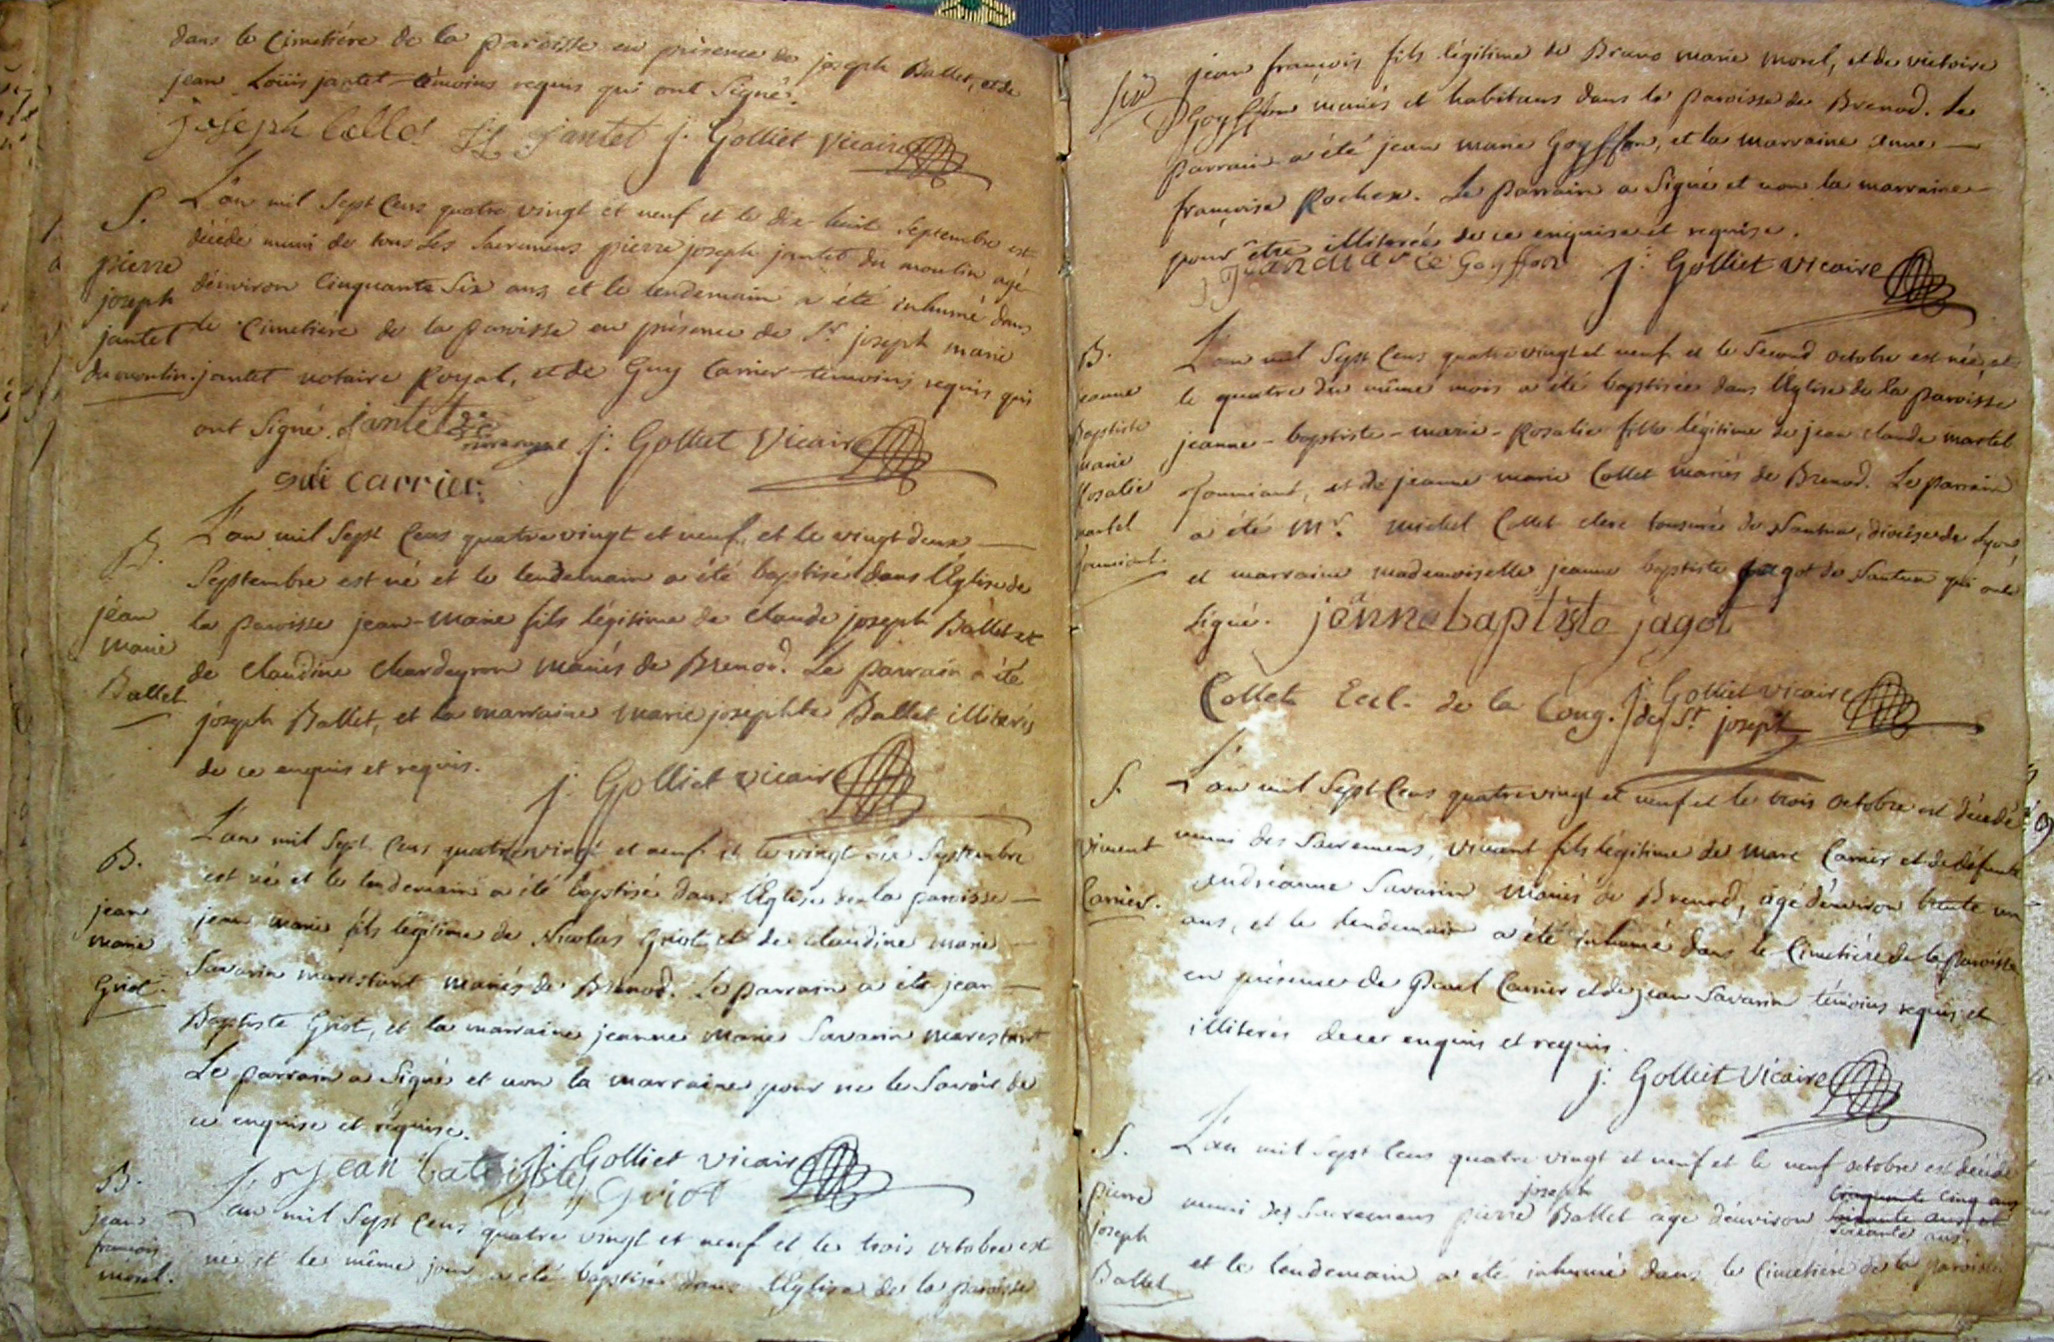 dans le Cimetiére de la paroisse en présence de joseph Ballet, et de
jean Loüis jantet témoins requis qui ont Signé.
joseph ballet jl jantet j: Golliet Vicaire
S.
pierre
joseph
jantet
du moulin.
L'an mil Sept Cens quatre vingt et neuf et le dix huit Septembre est
décédé muni de tous les Sacremens pierre joseph jantet du moulin agé
d'environ Cinquante Six ans, et le lendemain a été inhumé dans
le Cimetiére de la paroisse en présence de Sr. joseph marie
jantet notaire Royal, et de Guy Carrier témoins requis qui
ont Signé. jantet
j: Golliet Vicaire
gui carrier.
B.
jean
marie
Ballet
L'an mil Sept Cens quatre vingt et neuf, et le vingt deux
Septembre est né et le lendemain a été baptisé dans l'Eglise de
la paroisse jean-marie fils légitime de Claude joseph Ballet et
de Claudine Chardeyron mariés de Brenod. Le parrain a été
joseph Ballet, et la marraine marie josephte Ballet illiterés
de ce enquis et requis.
j: Golliet vicaire
B.
jean
marie
Griot.
L'an mil Sept Cens quatre vingt et neuf et le vingt six Septembre
est né et le lendemain a été baptisé dans l'Eglise de la paroisse
jean marie fils légitime de Nicolas Griot, et de claudine marie
Savarin marestant mariés de Brenod. Le parrain a été jean
Baptiste Griot, et la marraine jeanne marie Savarin marestant
Le parrain a Signé et non la marraine pour ne le Savoir de
ce enquise et réquise.
j: Golliet vicaire
jean batiste Griot
B.
jean
francois
morel.
L'an mil Sept Cens quatre vingt et neuf et le trois octobre est
né et le même jour a été baptisé dans l'Eglise de la paroisse
jean françois fils légitime de Bruno marie morel, et de victoire
Goyffon mariés et habitans dans la paroisse de Brenod. Le
parrain a été jean marie Goyffon, et la marraine anne
françoise Rochex. Le parrain a Signé et non la marraine
pour être illiterée de ce enquise et requise.
jean marie Goyffon j: Golliet vicaire
B.
jeanne
Baptiste
marie
Rosalie
martel
Joumiant.
L'an mil Sept Cens quatre vingt et neuf et le Second octobre est née, et
le quatre du même mois a été baptisée dans l'Eglise de la paroisse
jeanne-baptiste-marie-Rosalie fille légitime de jean claude martel
Joumiant, et de jeanne marie Collet mariés de Brenod. Le parrain
a été Mr. michel Collet clerc tonsuré de Nantua, diocèse de Lyon,
et marraine mademoiselle jeanne baptiste jagot de Nantua qui ont
Signé. jeanne baptiste jagot
Collet Eccl. de la Cong. de St joseph
j: Golliet vicaire
S.
vincent
Carrier.
L'an mil Sept Cens quatre vingt et neuf et le trois octobre est décédé
muni des Sacremens, vincent fils légitime de marc Carrier et de défunte
andréanne Savarin mariés de Brenod, agé d'environ trente un
ans, et le lendemain a été inhumé dans le Cimetiére de la paroisse
en présence de Paul Carrier et de jean Savarin témoins requis et
illiterés de ce enquis et requis.
j: Golliet Vicaire
S.
pierre
joseph
Ballet
L'an mil Sept Cens quatre vingt et neuf et le neuf octobre est décédé
muni des Sacremens pierre joseph Ballet agé d'environ Cinquante Cinq ans
Soixante ans et
Soixante ans.
et le lendemain a été inhumé dans le Cimetiére de la paroisse